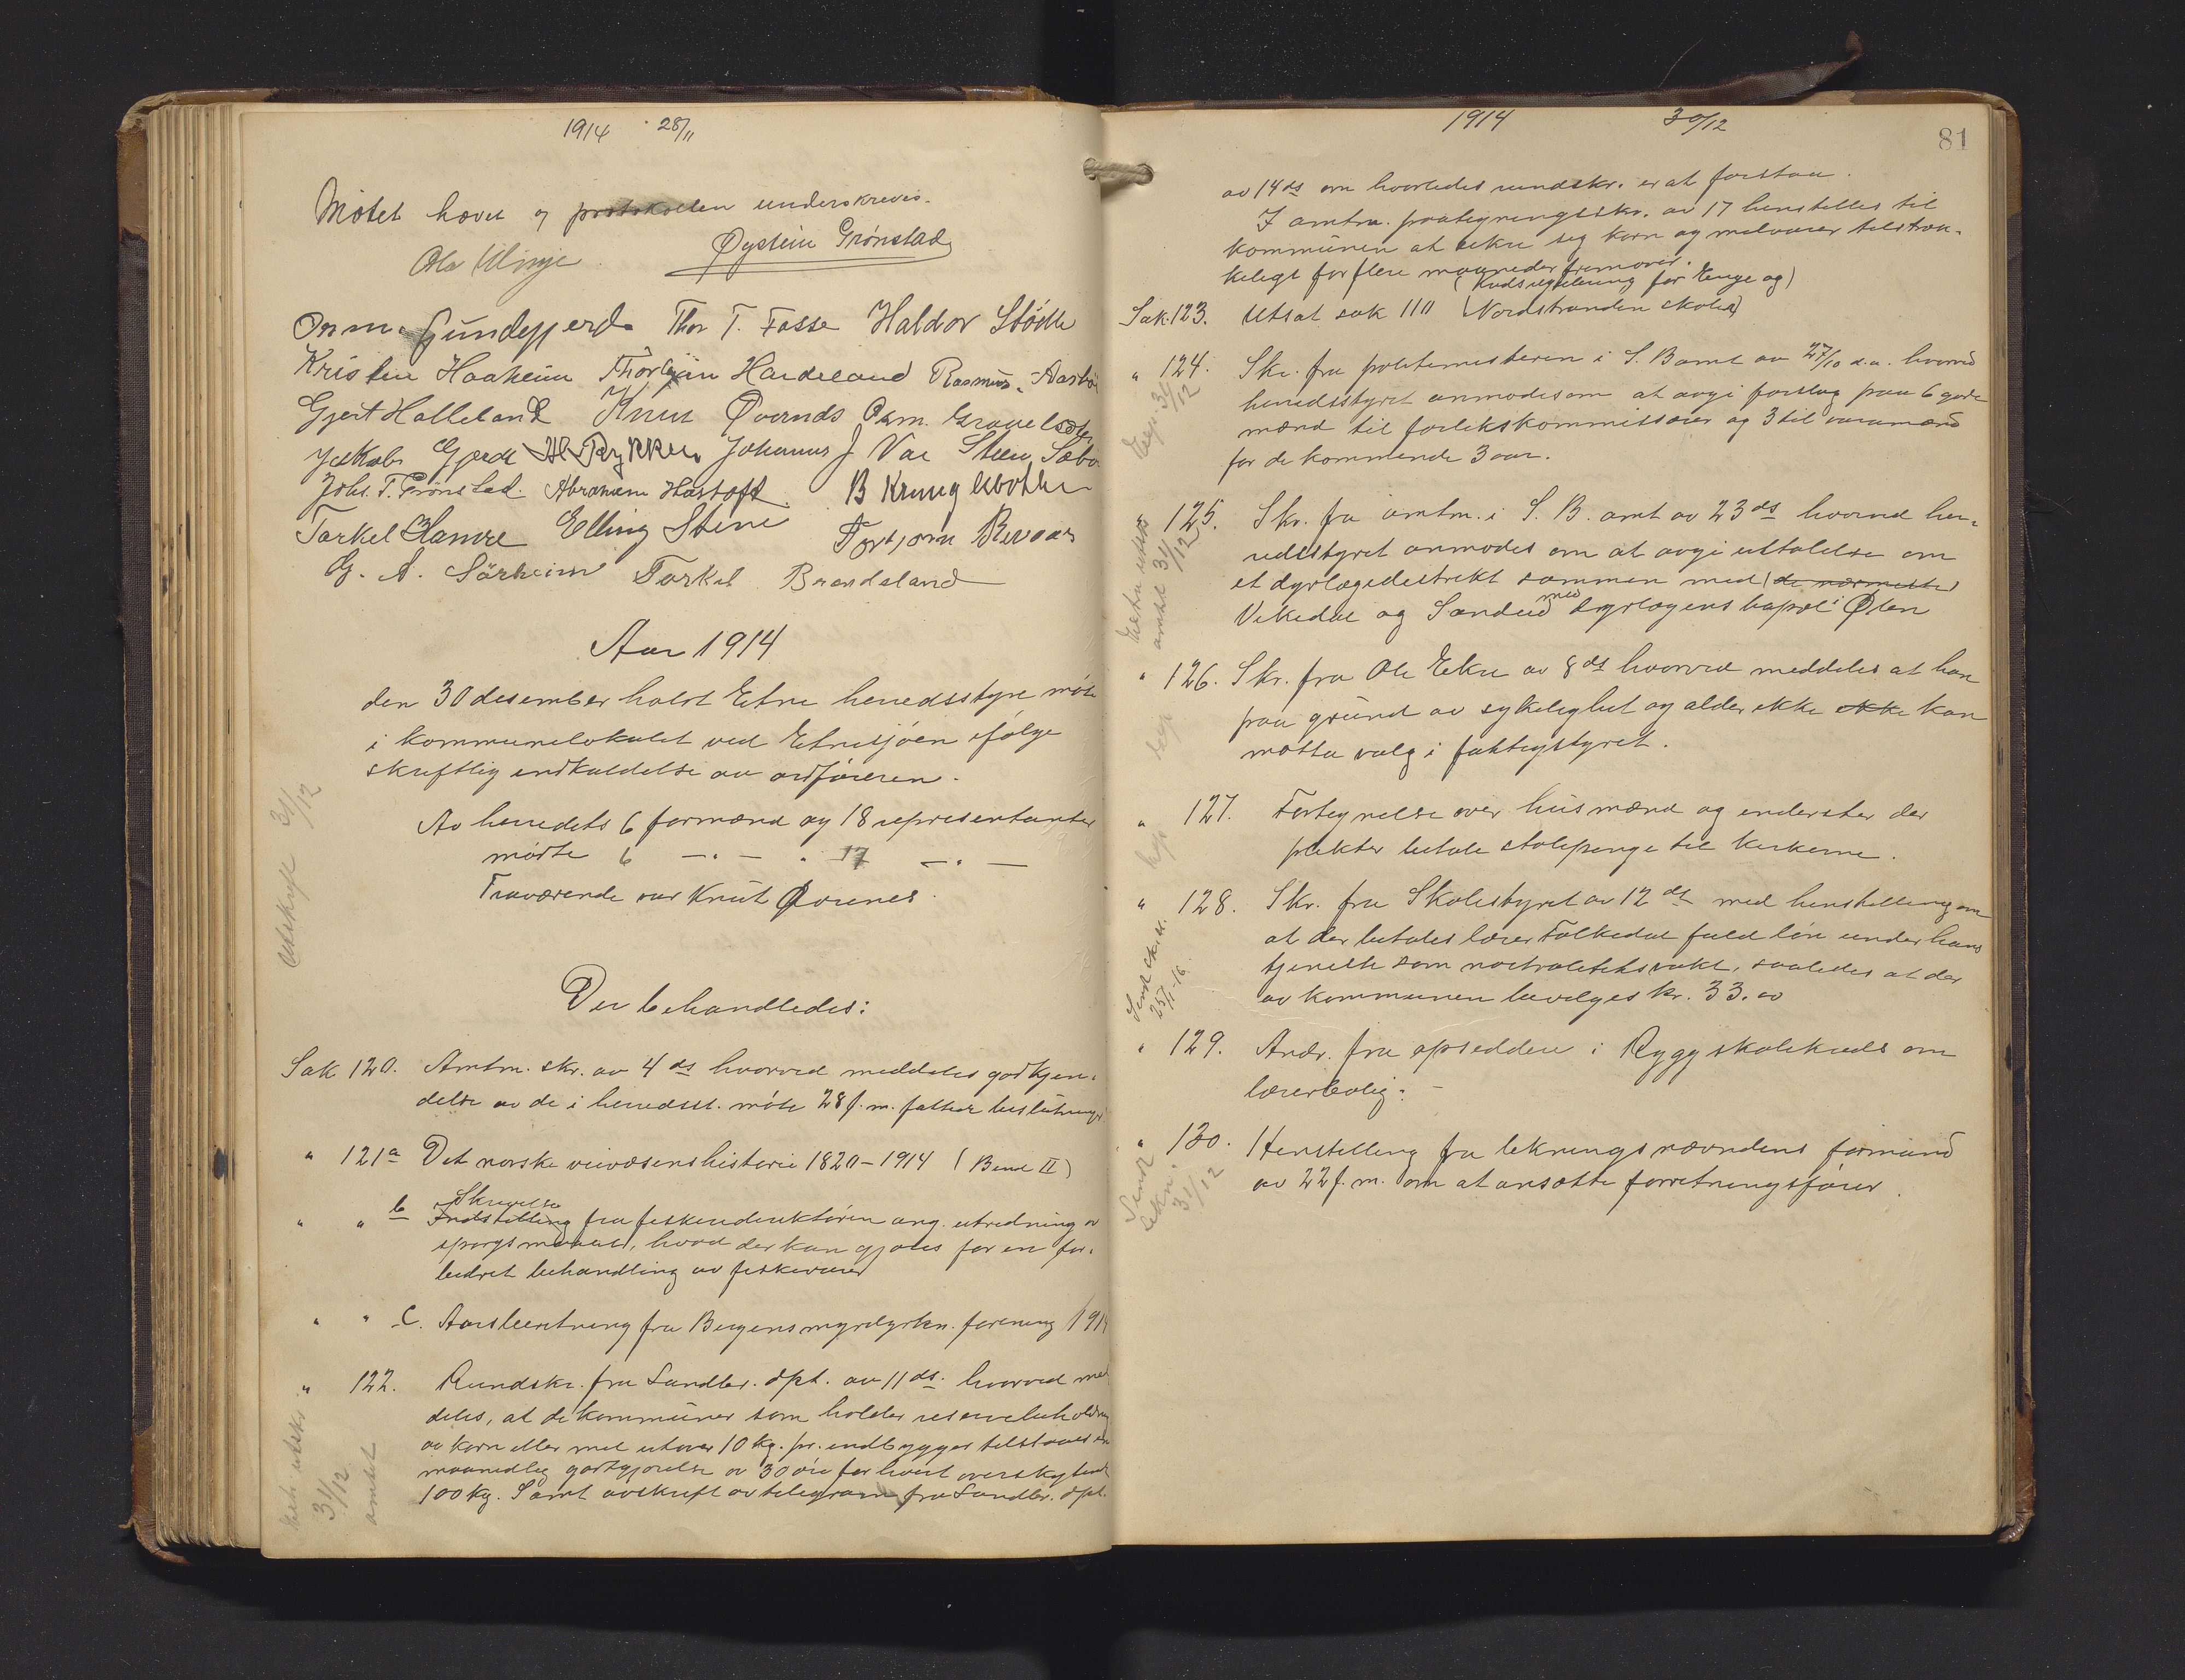 1914 28/11
Møtet hævet og protokollen underskreves.
Øystein Grønstad
Thor T. Fosse Haldor Stødle
Kristen Haaheim Hardeland Rasmus
Gjert Halleland Knut Øvernes Osm. Gravelsæter
Jakob Gjerde A Rykken Johannes J Våe Steen Sæbø
Johs. T. Grønstad. Abraham Hastoft B Kringlebotten
Torkel Hamre Elling Stene Torbjørn Bervaas
G. A. Sørheim Torkel Brandeland
Aar 1914
den 30 desember holdt Etne herredsstyre møte
i kommunelokalet ved Etnesjøen ifølge
skriftlig indkaldelse av ordføreren.
Av herredets 6 formænd og 18 representanter
møtte 6 — " — " 17 — " —
Fraværende var Knut Øvernes.
Utskrift 31/12
Der behandledes:
Sak 120. Amtm. skr. av 4 ds hvorved meddeles godkjen-
delse av de i herredsst. møte 28 f. m. fattede beslutninger
" 121a Det norske veivæsens historie 1820-1914 (Bind II)
Skrivelse
" " b Indstilling fra fiskeridirektøren ang. utredning av
spørgsmaalet, hvad der kan gjøres for en for-
bedret behandling av fiskevarer
" " c. Aarsberetning fra Bergens myrdyrkn. forening 1914
" 122. Rundskr. fra Landbr. dpt. av 11 ds. hvorved med
deles, at de kommuner som holder reservebeholdning
av korn eller mel utover 10 kg. pr. indbygger tilstaaes en
maanedlig godtgjørelse av 30 øre for hvert overskytende
100 kg. Samt avskrift av telegram fra Landbr. dpt.
utskr 31/12 amtet
1914 30/12
81
av 14 ds om hvorledes rundskr. er at forstaa.
I amtm. paategningsskr. av 17 henstilles til
kommunen at sikre sig korn og melvarer tilstræk-
keligt for flere maaneder fremover.
(Kredsregulering for Enge og)
Sak 123. Utsat sak 110 (Nordstranden skoler)
" 124. Skr. fra politimesteren i S. B. amt av 27/10 d.a. hvorved
herredsstyret anmodes om at avgi forslag paa 6 gode
mænd til forlikskommissærer og 3 til varamænd
for de kommende 3 aar.
Exp. 31/12
" 125. Skr. fra amtm. i S. B. amt av 23 ds hvorved her-
redsstyret anmodes om at avgi uttalelse om
et dyrlægedistrikt sammen med (de nærmeste)
Vikedal og Sandeid med dyrlægens bopæl i Ølen
utskr. amtet 31/12
" 126. Skr. fra Ole Eikre av 8 ds hvorved meddeles at han
paa grund av sykelighet og alder ikke ikke kan
motta valg i fattigstyret.
" 127. Fortegnelse over husmænd og inderster der
plikter betale stolepenge til kirkerne.
" 128. Skr. fra Skolestyret av 12 ds med henstilling om
at der betales lærer Folkedal fuld løn under hans
tjeneste som nøitralitetsvakt, saaledes at der
av kommunen bevilges kr. 33.00
" 129. Andr. fra opsiddere i Rygg skolekreds om
lærerbolig. -
" 130. Henstilling fra likningsnævndens formand
av 22 f. m. om at ansætte forretningsfører.
Sendt likn. 31/12